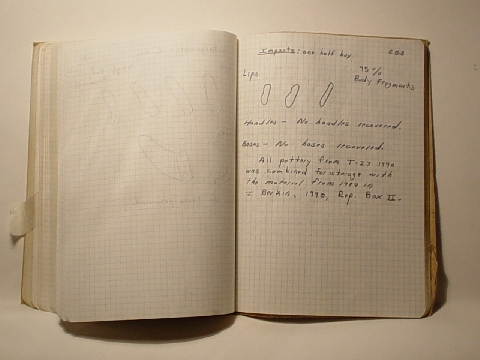 Imports: one half box
253
95%
Body Fragments
Lips
Handles - No handles recovered.
Bases - No bases recovered.
All pottery from T-27 1990
was combined for storage with
the material from 1989 in
Berlin, 1990, Rep. Box II.